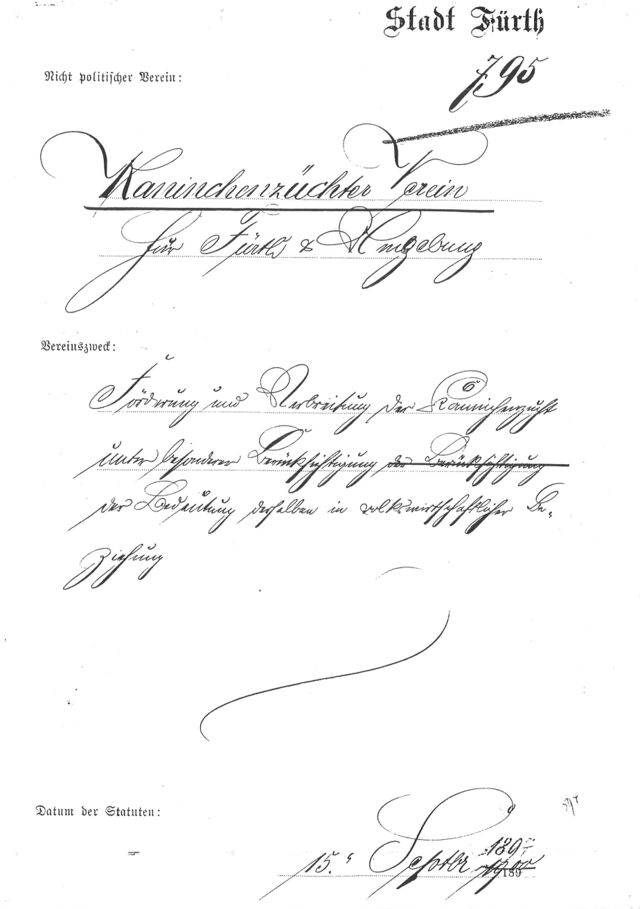 Stadt Fürth
795
Nicht politischer Verein:
Kaninchenzüchter Verein
für Fürth & Umgebung
Vereinszweck:
Förderung und Verbreitung der Kaninchenzucht
unter besonderer Berücksichtigung der Berücksichtigung
der Bedeutung derselben in volkswirthschaftlicher Be-
ziehung
Datum der Statuten:
15. Septbr
1900
189